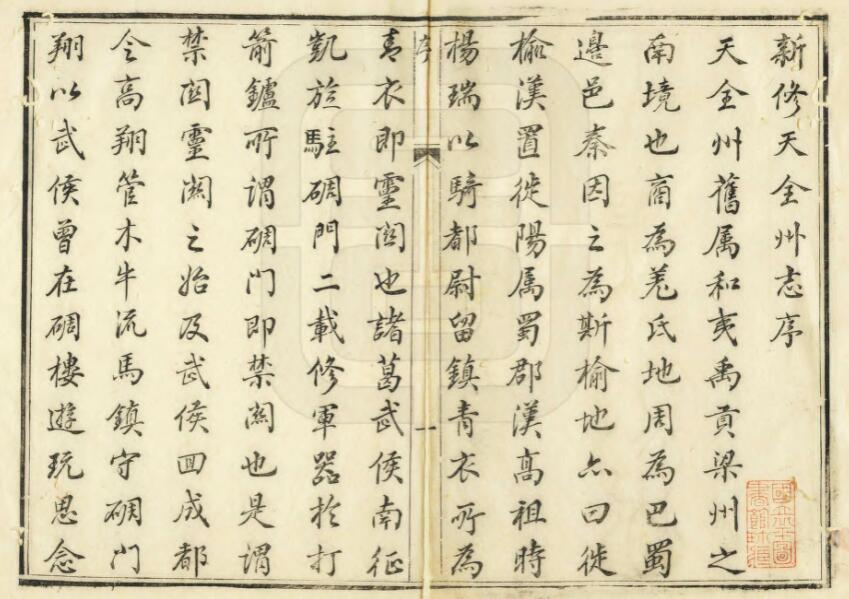 新修天全州志序
天全州舊属和夷禹貢梁州之
南境也商為羗氐地周為巴蜀
邊邑秦因之為斯榆地亦曰徙
榆漢置徙陽属蜀郡漢髙祖時
楊瑞以騎都尉留鎮青衣所為
序
一
青衣即靈関也諸葛武侯南征
凱旋駐碉門二載修軍器於打
箭鑪所謂碉門即禁関也是謂
禁関靈関之始及武侯回成都
令高翔管木牛流馬鎮守碉門
翔以武侯曾在碉樓遊玩思念
國立北平圖
書館收藏